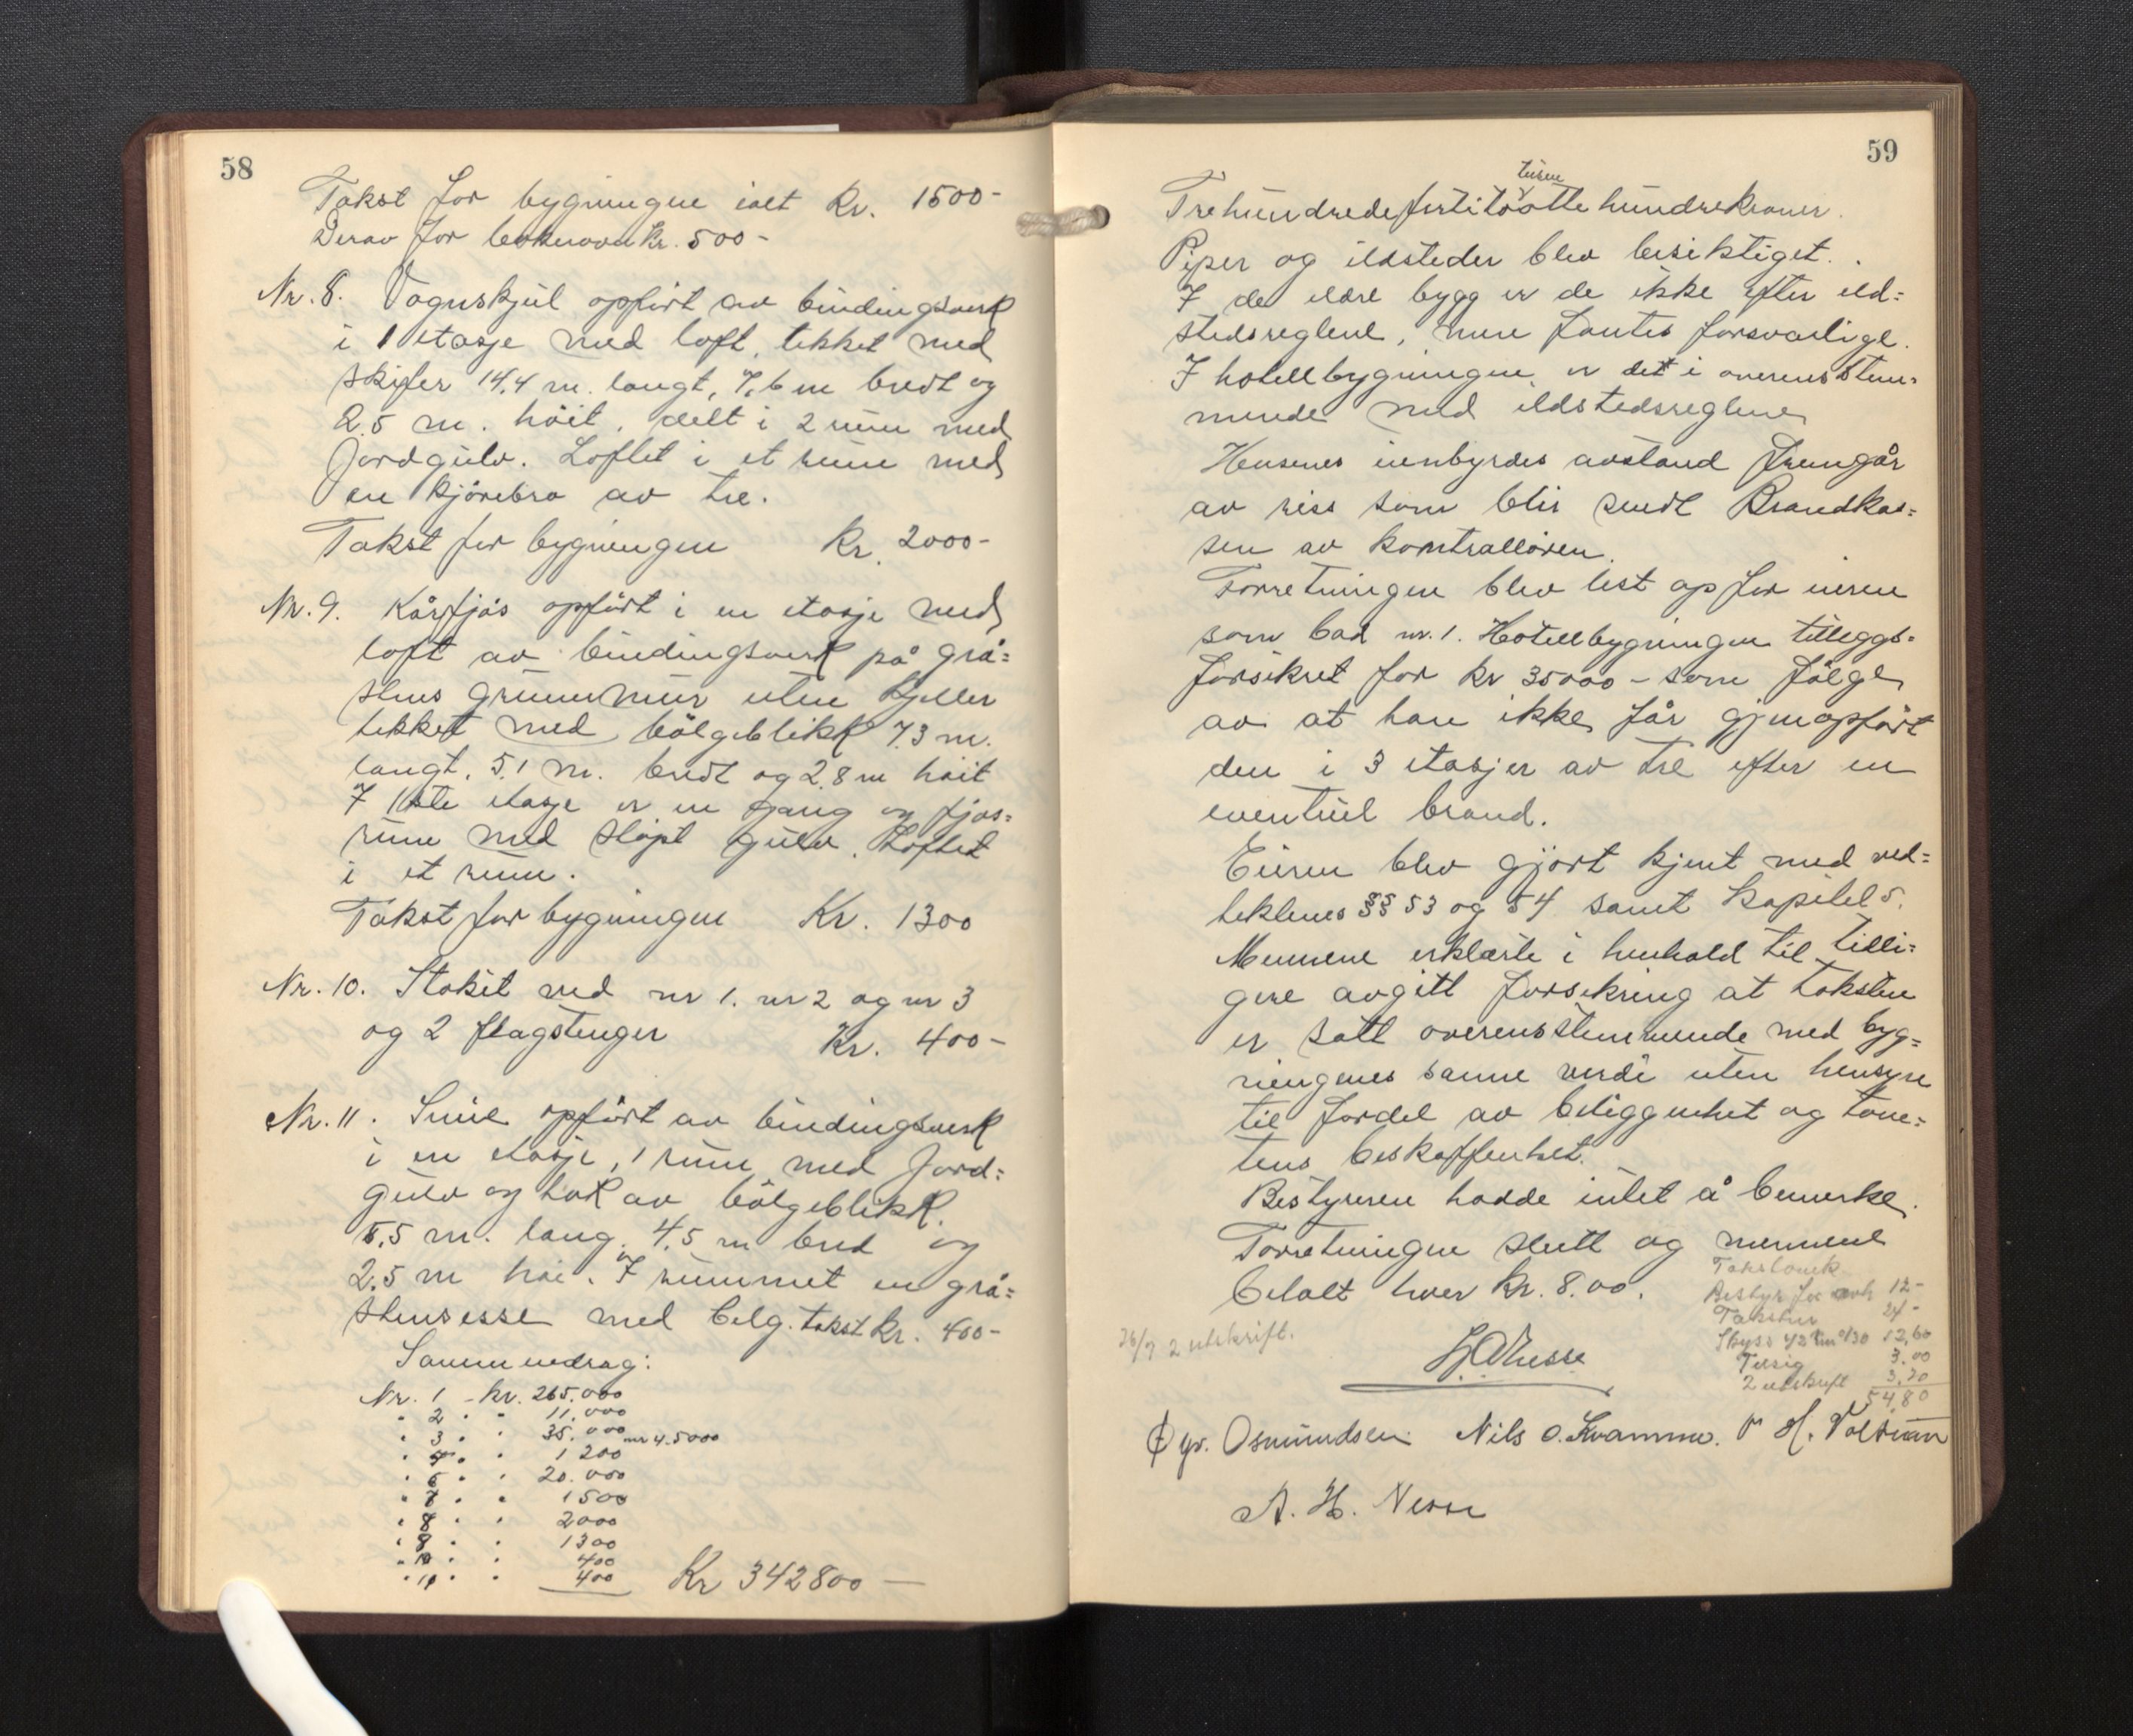 58
Takst for bygningen ialt Kr. 1500-
Derav for bakerovn Kr. 500-
Nr. 8. Vognskjul opført av bindingsverk
i 1 etasje med loft, tekket med
skifer 14,4 m. langt, 7,6 m bredt og
2,5 m. höit, delt i 2 rum med
Jordgulv. Loftet i et rum med
en kjörebro av tre.
Takst for bygningen Kr. 2000-
Nr. 9. Kårfjös opfört i en etasje med
loft av bindingsverk på grå=
stens grunnmur uten kjeller
tekket med bölgeblikk 7,3 m.
langt, 5,1 m. bredt og 2,8 m höit
I 1ste etasje er en gang og fjös=
rum med stöpt gulv. Loftet
i et rum.
Takst for bygningen Kr. 1300
Nr. 10. Stakit ved nr 1. nr 2 og nr 3
og 2 flagstenger Kr. 400-
Nr. 11. Smie opfört av bindingsverk
i en etasje, 1 rum med Jord=
gulv og tak av bölgeblikk.
5,5 m. lang. 4,5 m bred og
2,5 m höi. I rummet en grå=
stensesse med belg. takst kr. 400-
Sammendrag:
Nr. 1 - kr. 265.000
" 2 " " 11.000
" 3 " " 35.000 nr 4. 5000
" " " 1 200
" 6 " " 20.000
" 7 " " 1500
" 8 " " 2000
" 9 " " 1300
" 10 " " 400
" 11 " " 400 Kr 342800 —
59
tusen
Trehundredeførtito åttehundrekroner.
Piper og ildsteder blev besiktiget.
I de eldre bygg er de ikke efter ild=
stedsreglene, men fantes forsvarlige.
I hotellbygningen er det i overensstem=
mende med ildstedsreglene
Husenes innbyrdes avstand fremgår
av riss som blir sendt Brandkas=
sen av kontrolløren.
Forretningen blev lest op for eieren
som bad nr. 1. Hotellbygningen tilleggs=
forsikret for kr 35000 - som fölge
av at han ikke får gjenopfört
den i 3 etasjer av tre efter en
eventuel brand.
Eieren blev gjort kjent med ved=
tektenes §§ 53 og 54 samt kapitel 5.
Mennene erklærte i henhold til tidli=
gere avgitt forsikring at taksten
er satt overensstemmende med byg=
ningenes sanne verdi uten hensyn
til fordel av beliggenhet og tom=
tens beskaffenhet.
Bestyreren hadde intet å bemerke.
Forretningen slutt og mennene
betalt hver kr. 8.00.
Bestyr for 12-
Takstm 24-
Skyss 42 km a/30 12,60
Tilsig 3.00
2 utskrift 3,20
54,80
26/7 2 utskrift.
Osmundsen Nils O. Kvamme.
A. H. Nesse